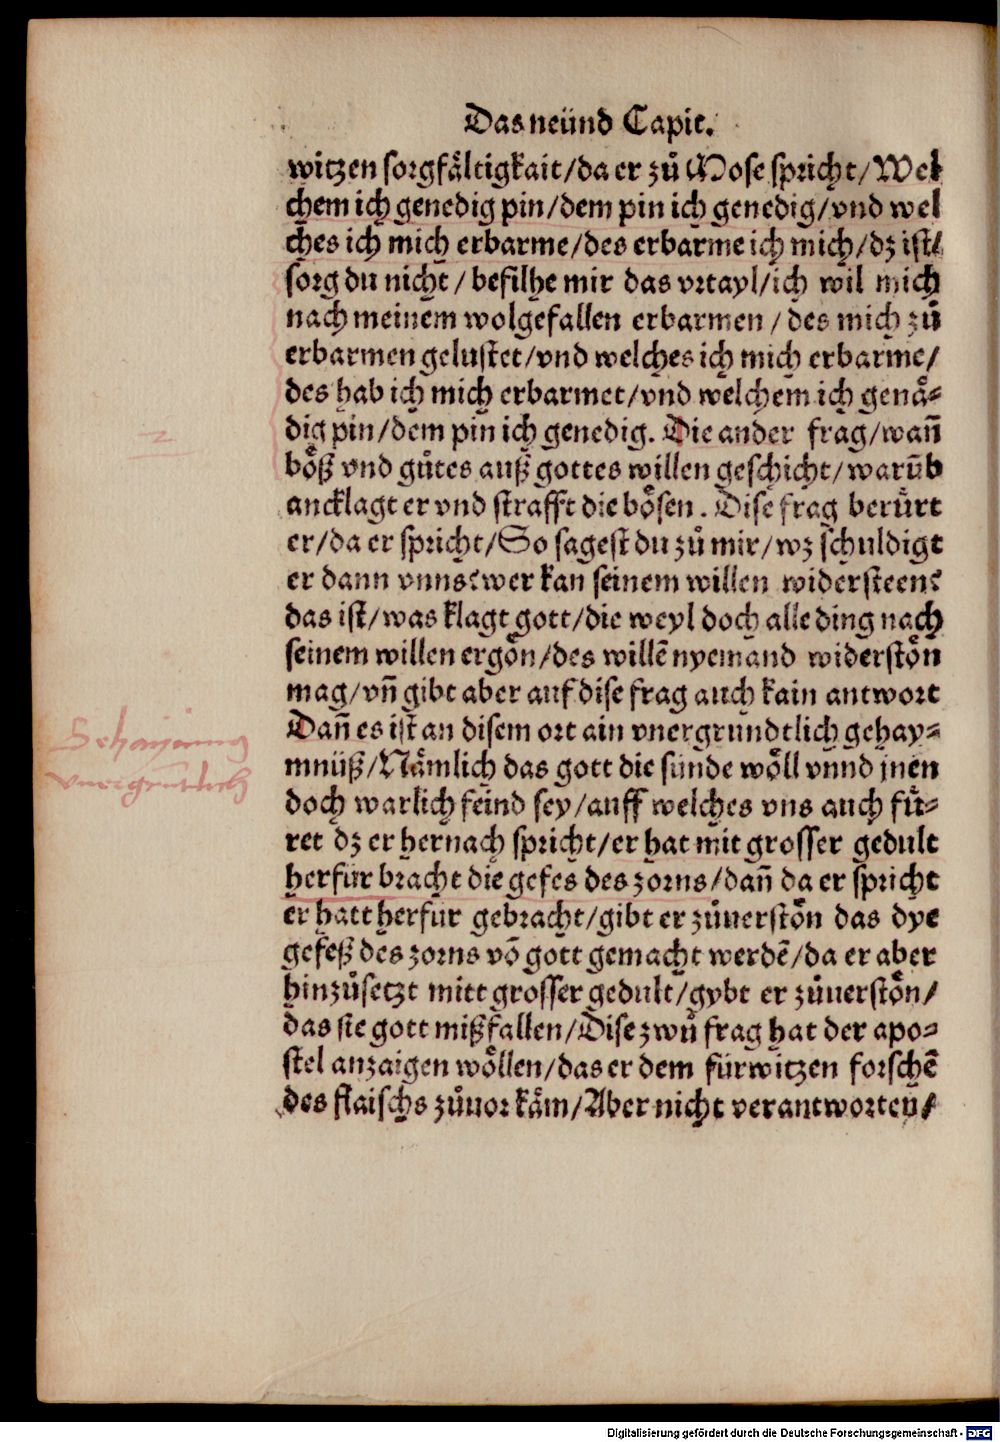 Das neünd Capit.
witzen sorgfåltigkait/da er zů Mose spricht/Wel
chem ich genedig pin/dem pin ich genedig/vnd wel
ches ich mich erbarme/des erbarme ich mich/dz ist/
sorg du nicht/befilhe mir das vrtayl/ich wil mich
nach meinem wolgefallen erbarmen/des mich zů
erbarmen gelustet/vnd welches ich mich erbarme/
des hab ich mich erbarmet/vnd welchem ich genå⸗
dig pin/dem pin ich genedig. Die ander frag/wañ
bôß vnd gůtes auß gottes willen geschicht/warūb
ancklagt er vnd strafft die bôsen. Dise frag berůrt
er/da er spricht/So sagest du zů mir/wz schuldigt
er dann vnns?wer kan seinem willen widersteen?
das ist/was klagt gott/die weyl doch alle ding nach
seinem willen ergôn/des willē nyemand widerstôn
mag/vñ gibt aber auf dise frag auch kain antwort
Dañ es ist an disem ort ain vnergrundtlich gehay⸗
mnüß/Nåmlich das gott die sünde wôll vnnd jnen
doch warlich feind sey/auff welches vns auch fů⸗
ret dz er hernach spricht/er hat mit grosser gedult
herfür bracht die gefes des zorns/dañ da er spricht
er hatt herfür gebracht/gibt er zůuerstôn das dye
gefeß des zorns vō gott gemacht werdē/da er aber
hinzůsetzt mitt grosser gedult/gybt er zůuerstôn/
das sie gott mißfallen/Dise zwů frag hat der apo⸗
stel anzaigen wôllen/das er dem fürwitzen forschē
des flaischs zůuor kåm/Aber nicht verantworten/
2
vnergruntlich
Digitalisierung gefördert durch die Deutsche Forschungsgemeinschaft - DFG